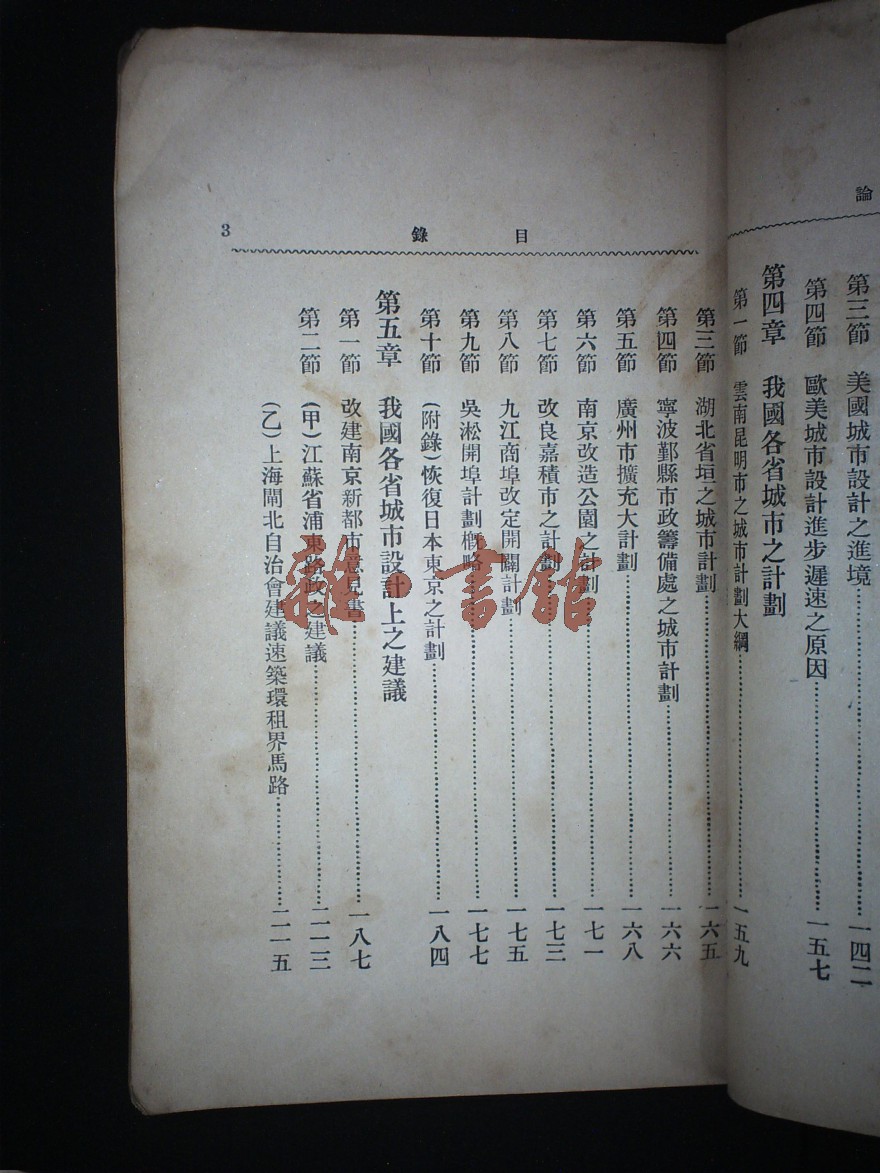 論
第三節 美國城市設計之進境……一四二
第四節 歐美城市設計進步遲速之原因……一五七
第四章 我國各省城市之計劃
第一節 雲南昆明市之城市計劃大綱……一五九
目錄 3
第三節 湖北省垣之城市計劃……一六五
第四節 寧波鄞縣市政籌備處之城市計劃……一六六
第五節 廣州市擴充大計劃……一六八
第六節 南京改造公園之計劃……一七一
第七節 改良嘉積市之計劃……一七三
第八節 九江商埠改定開闢計劃……一七五
第九節 吳淞開埠計劃概略……一七七
第十節 (附錄)恢復日本東京之計劃……一八四
第五章 我國各省城市設計上之建議
第一節 改建南京新都市意見書……一八七
第二節 (甲)江蘇省浦東路政之建議……二一三
(乙)上海閘北自治會建議速築環租界馬路……二一五
雜·書館